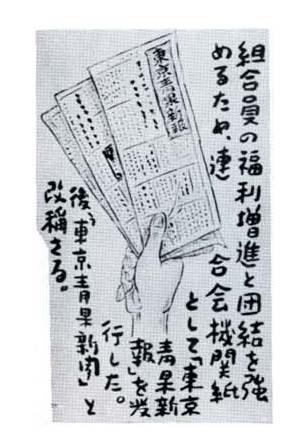 組合員の福利増進と団結を強
めるため、連
合会機関紙
として「東京
青果新
報」を発
行した。
後、「東京青果新聞」と
改称さる。
東京青果新報